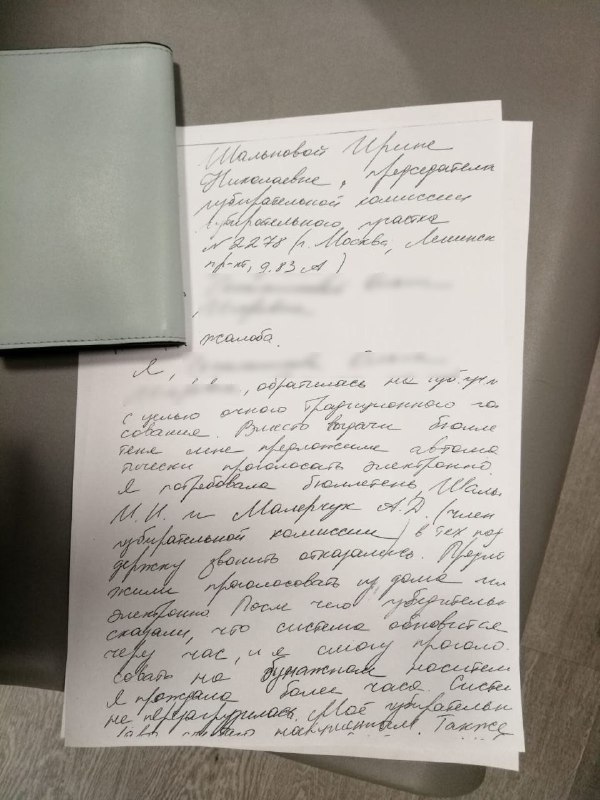 Шальновой Ирине
Николаевне, председателя
избирательной комиссии
избирательного участка
№ 2278 (г. Москва, Ленинск
пр-кт, д. 83 А)
жалоба.
Я, , обратилась на
с целью очного традиционного го
сования. Вместо выдачи бюлле
теня мне предложение автома
тически проголосать электронно.
Я потребовала бюллетень,
и Малерчук А.Д. (член
избирательной комиссии) в тех под
держку звонить отказались. Предло
жили проголосовать из дома
электронно. После чего убедительн
сказали, что система обновится
через час, и я смогу проголо
совать на бумажном носителе
Я прождала более часа. Систе
не перезагрузилась. Моё избирательн
нарушенным. Также